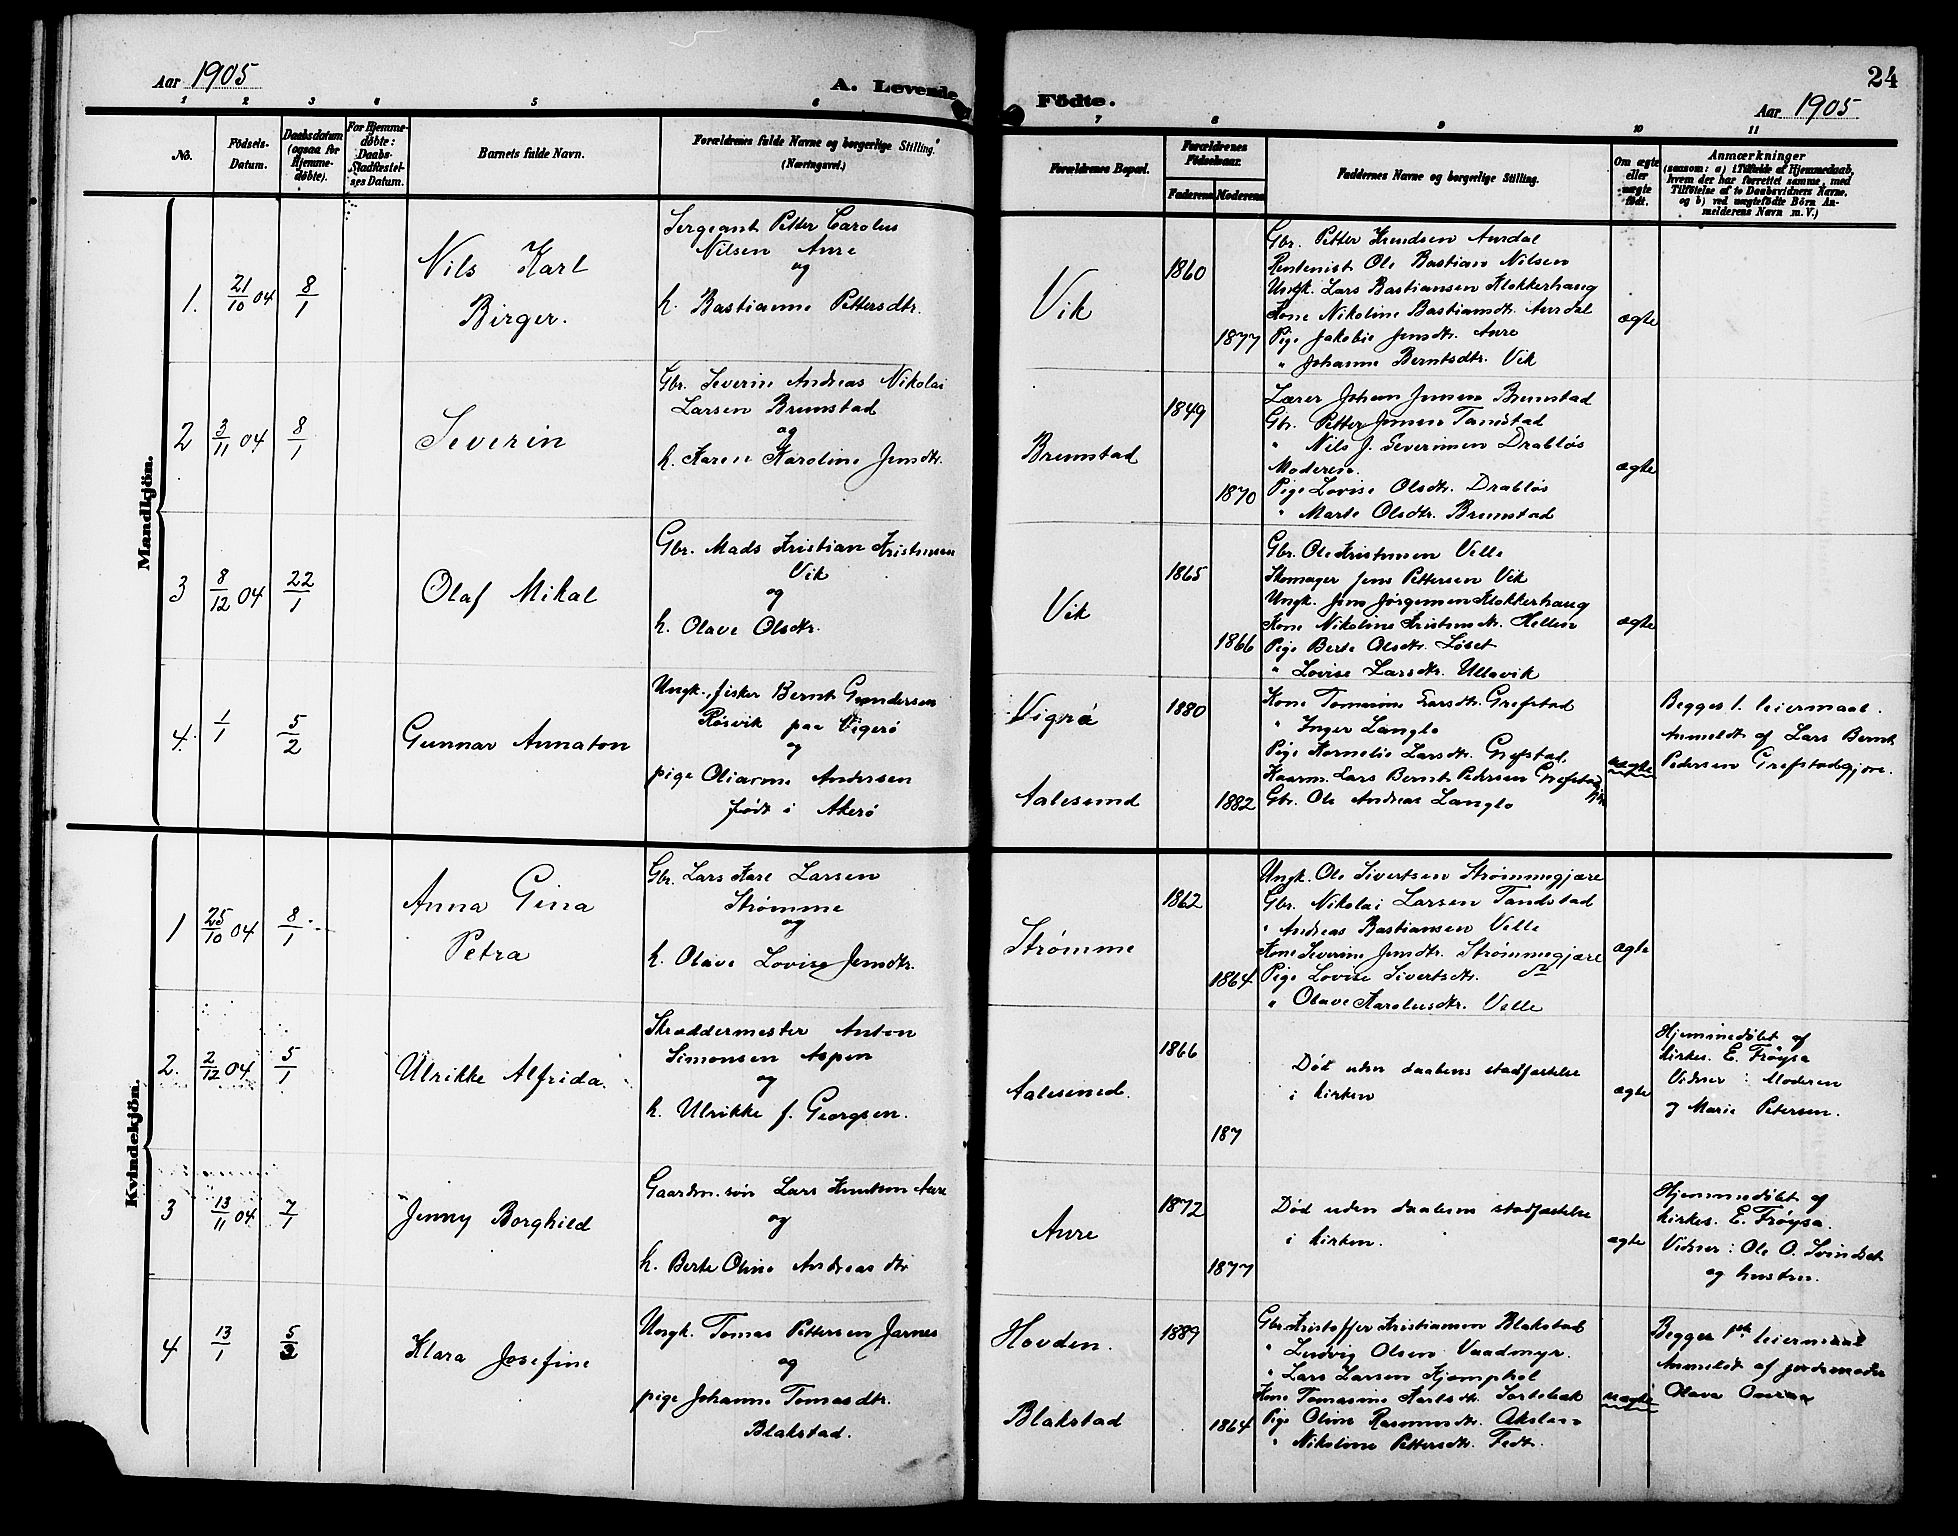 Aar 1905
A. Levende
Födte.
24
Aar 1905
1 2 3 4 5 6 7 8 9 10 11
No.
Födsels-
Datum.
Daabsdatum
(ogsaa for
Hjemme-
døbte).
For Hjemme-
døbte:
Daabs-
Stadfæstel-
ses Datum.
Barnets fulde Navn.
Forældrenes fulde Navne og borgerlige Stilling.
(Næringsvei.)
Forældrenes Bopæl.
Forældrenes
Födselsaar.
Faderens
Moderens
Faddernes Navne og borgerlige Stilling.
Om ægte
eller
uægte
født.
Anmærkninger
(saasom: a) i Tilfælde af Hjemmedaab,
hvem der har forrettet samme, med
Tilföielse af to Daabsvidners Navne,
og b) ved uægtefödte Börn An-
melderens Navn m. V.)
Mandkjön.
1. 21/10 04 8/1
Nils Karl
Birger.
Sergeant Petter Carolus
Nilsen Aure
og
h. Bastianne Pettersdtr.
Vik
1860
1877
Gbr. Petter Knudsen Aurdal
Rentenist Ole Bastian Nilsen
Ungk. Lars Bastiansen Klokkerhaug
Kone Nikoline Bastiansdtr. Aurdal
Pige Jakobie Jensdtr. Aure
" Johanne Berntsdtr. Vik
ægte
2 3/11 04 8/1
Severin
Gbr. Severin Andreas Nikolai
Larsen Brunstad
og
h. Karen Karoline Jensdtr.
Brunstad
1849
1870
Lærer Johan Jensen Brunstad
Gbr. Petter Jensen Tandstad
" Nils J. Severinsen Drabløs
Moderen.
Pige Lovise Olsdtr. Drabløs
" Marte Olsdtr. Brunstad
ægte
3 8/12 04 22/1
Olaf Mikal
Gbr. Mads Kristian Kristensen
Vik
og
h. Olave Olsdtr.
Vik
1865
1866
Gbr. Ole Kristensen Velle
Skomager Jens Pettersen Vik
Ungk. Jens Jørgensen Klokkerhaug
Kone Nikoline Kristensdtr. Hellen
Pige Berte Olsdtr. Løset
" Lovise Larsdtr. Ullavik
ægte
4. 1/1 5/2
Gunnar Annaton
Ungk., fisker Bernt Gundersen
Røsvik paa Vigerø
og
pige Olianne Andersen
født i Akerø
Vigrø
Aalesund
1880
1882
Kone Tomasine Larsdtr. Grefstad
" Inger Langlo
Pige Kornelie Larsdtr. Grefstad
Kaarm. Lars Bernt Pedersen Grefstad
Gbr. Ole Andreas Langlo
uægte
Begges 1. leiermaal.
Anmeldt af Lars Bernt
Pedersen Grefstadgjøre.
Kvindekjön.
1 25/10 04 8/1
Anna Gina
Petra
Gbr. Lars Karl Larsen
Strømme
og
h. Olave Lovise Jensdtr.
Strømme
1862
1864
Ungk. Ole Sivertsen Strømmegjære
Gbr. Nikolai Larsen Tandstad
" Andreas Bastiansen Velle
Kone Severine Jensdtr. Strømmegjære
Pige Lovise Sivertsdtr.
" Olave Karolusdtr. Velle
ægte
2. 2/12 04 5/1
Ulrikke Alfrida.
Skræddermester Anton
Simonsen Aspen
og
h. Ulrikke f. Georgsen.
Aalesund.
1866
187
Død uden daabens stadfæstelse
i kirken
ægte
Hjemmedøbt af
kirkes. E. Frøysa
Vidner: Moderen
og Marie Petersen.
3 13/11 04 7/1
Jenny Borghild
Gaardm. søn Lars Knutsen Aure
og
h. Berte Oline Andreasdtr
Aure
1872
1877
Død uden daabens stadfæstelse
i kirken.
ægte
Hjemmedøbt af
kirkes. E. Frøysa.
Vidner: Ole O. Svindset
og hustru.
4 13/1 5/2
Klara Josefine
Ungk. Tomas Pettersen Jarnes
og
pige Johanne Tomasdtr.
Blakstad.
Hovden.
Blakstad
1889
1864
Gbr. Kristoffer Kristiansen Blakstad
" Ludvig Olsen Vaadmyr.
" Lars Larsen Kjemphol
Kone Tomasine Karlsdtr. Sortebæk
Pige Oline Rasmusdtr. Akslen
" Nikoline Pettersdtr. Fedt.
uægte
Begges 1ste leiermaal
Anmeldt af jordemoder
Olava